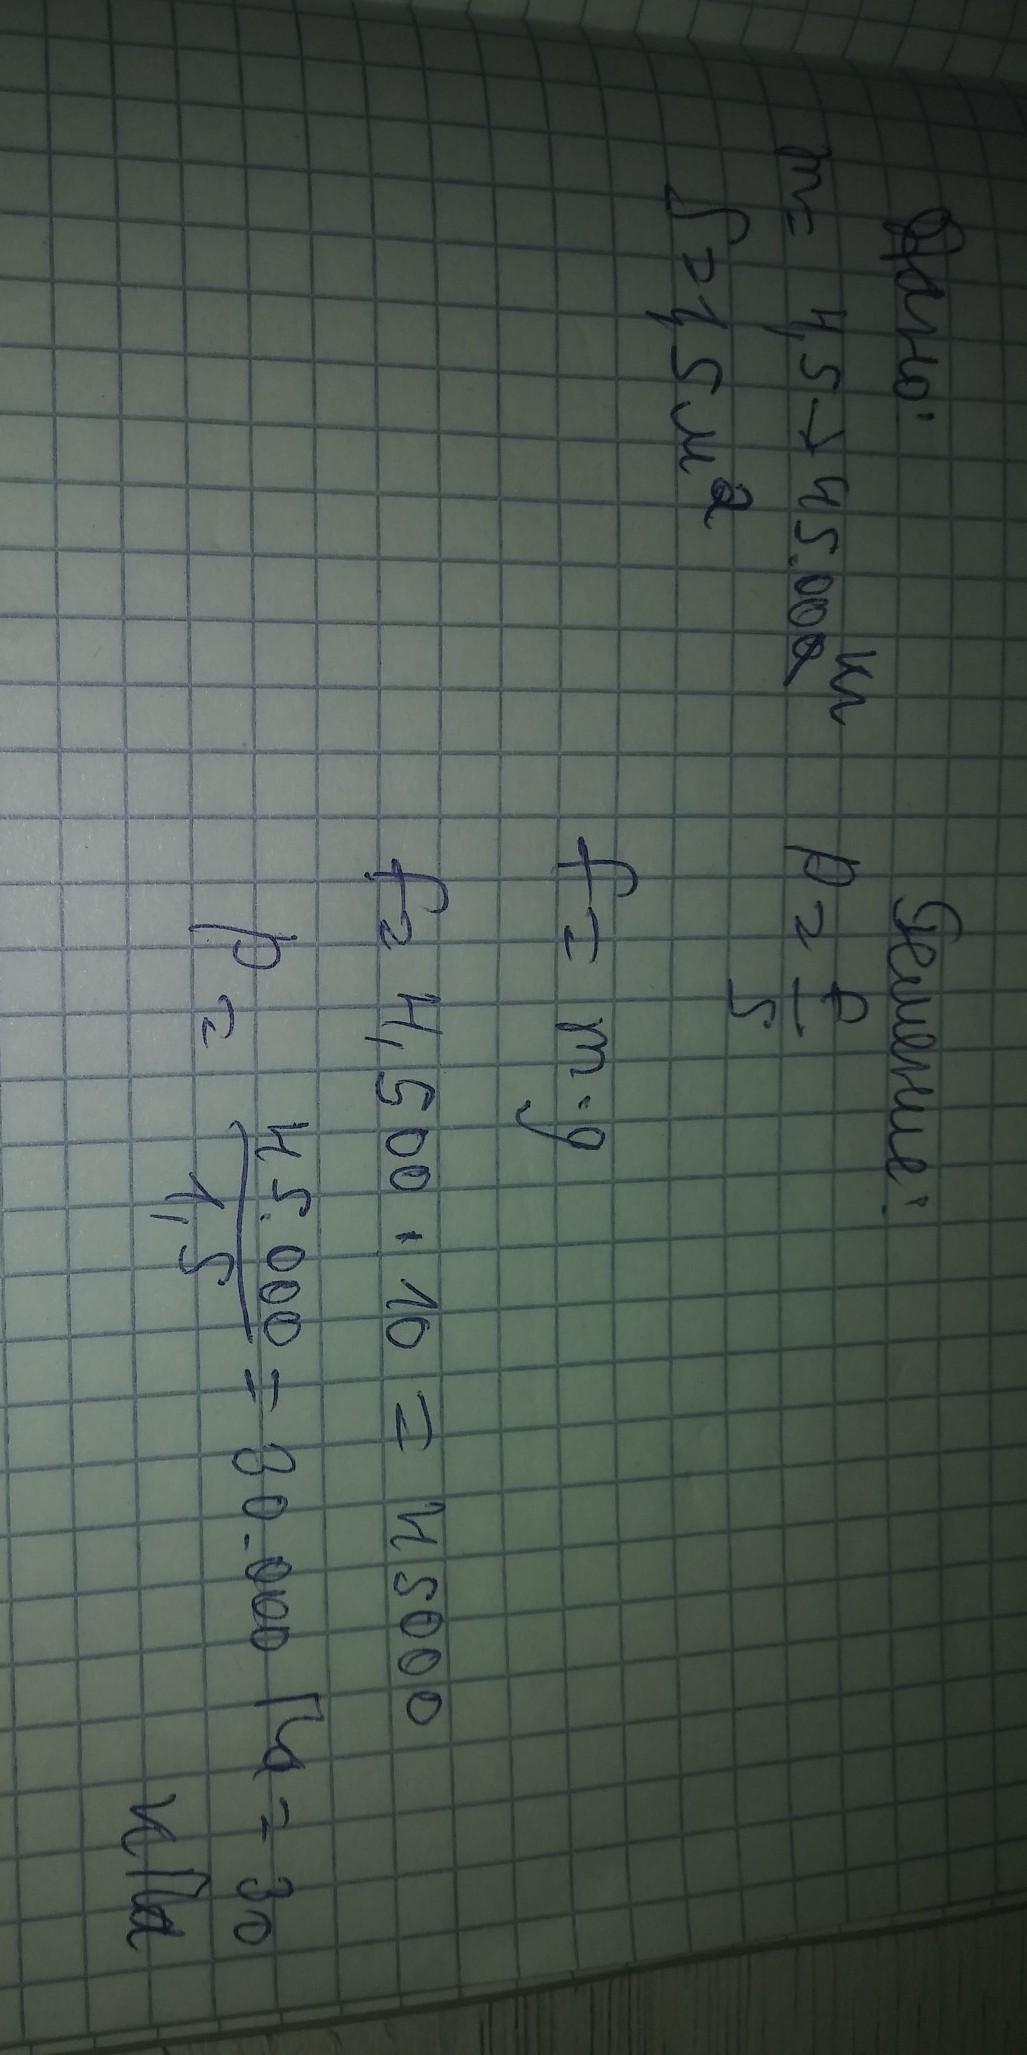 Дано:
m= 4,5 → 45.000 кг
S = 1,5 м²
Решение:
p = F/S
F = m · g
F = 4,500 · 10 = 45000
p = 45.000/1,5 = 30.000 Па = 30
кПа